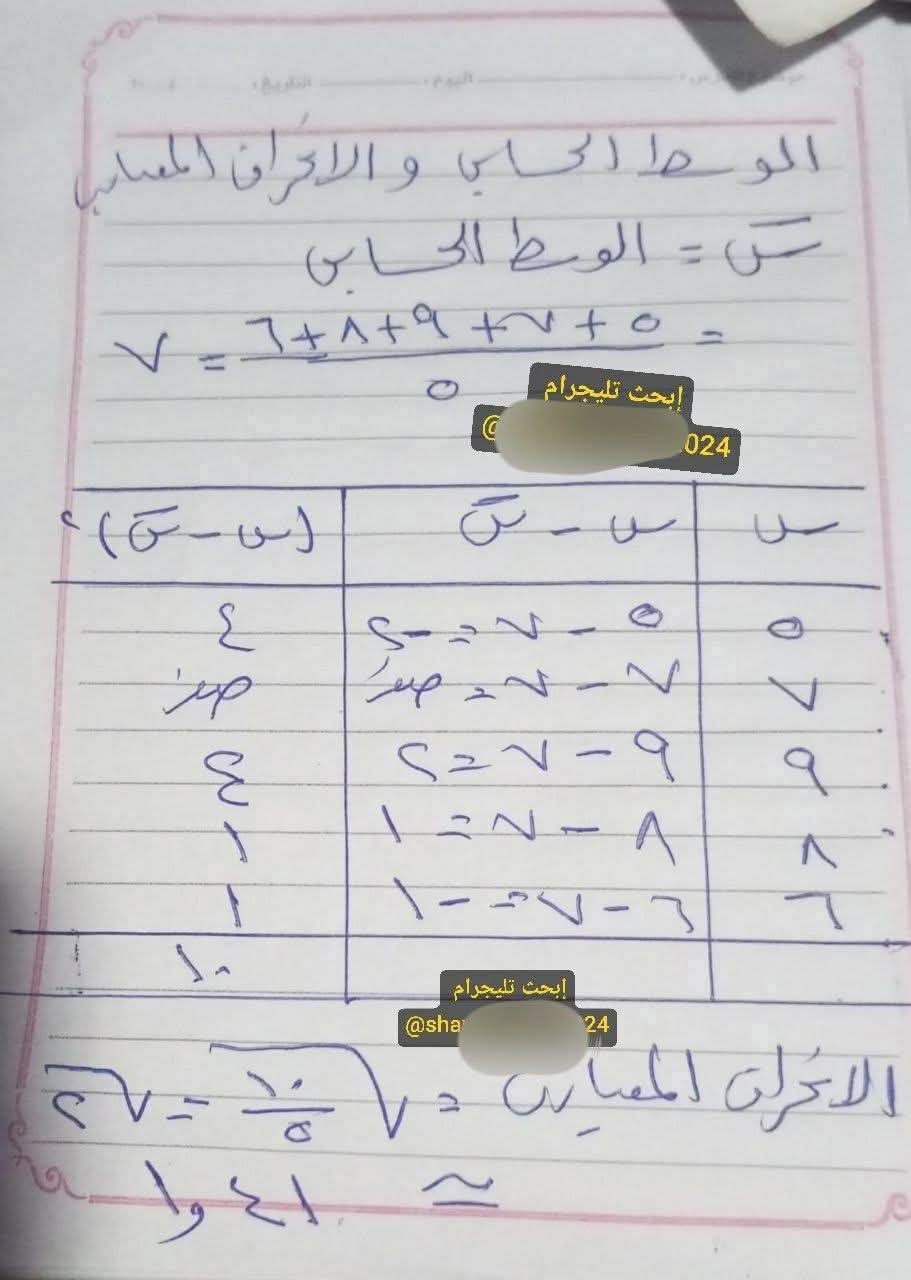 اليوم : التاريخ :
الوسط الحسابي والانحراف المعياري
س̄ = الوسط الحسابي
= ٥ + ٧ + ٩ + ٨ + ٦ = ٧
٥
إبحث تليجرام
@ 024
س | س - س̄ | (س - س̄)٢
٥ | ٥ - ٧ = -٢ | ٤
٧ | ٧ - ٧ = صفر | صفر
٩ | ٩ - ٧ = ٢ | ٤
٨ | ٨ - ٧ = ١ | ١
٦ | ٦ - ٧ = -١ | ١
١٠
إبحث تليجرام
@sha 24
الانحراف المعياري = √١٠/٥ = √٢
≃ ١و٤١